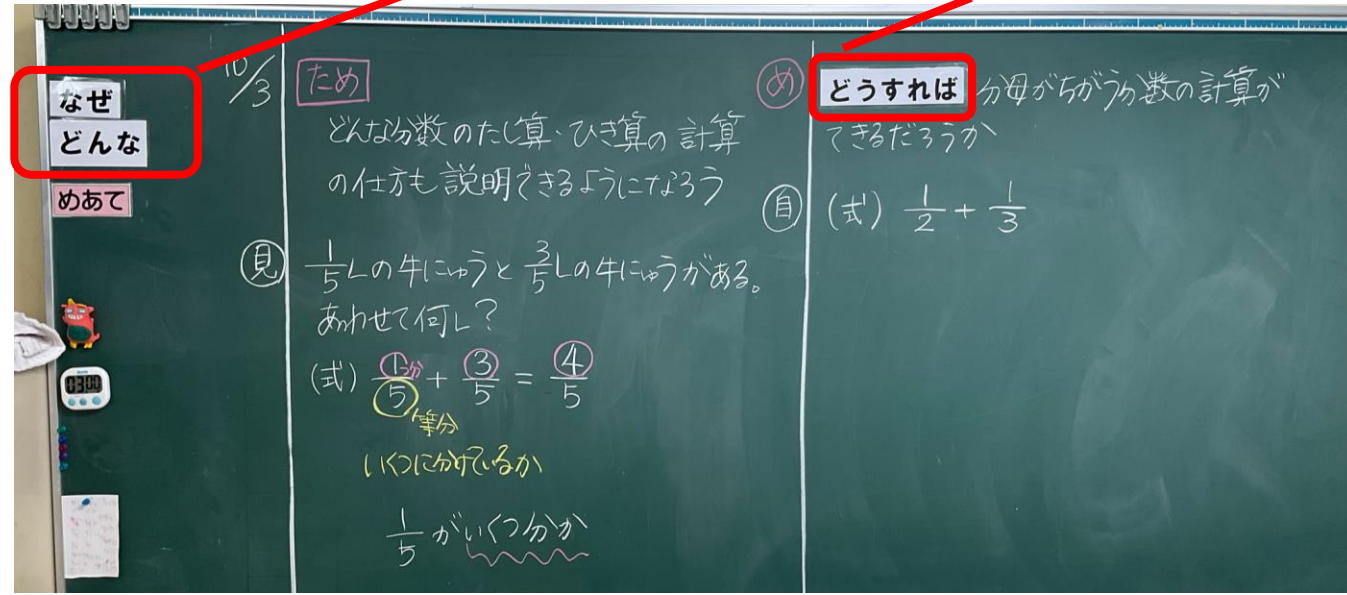 なぜ
どんな
めあて
03:00
10/3
ため
どんな分数のたし算・ひき算の計算
の仕方も説明できるようになろう
見
1/5Lの牛にゅうと3/5Lの牛にゅうがある。
あわせて何L?
(式) 1/5 + 3/5 = 4/5
つ分
等分
いくつに分けているか
1/5がいくつ分か
め
どうすれば 分母がちがう分数の計算が
できるだろうか
自
(式) 1/2 + 1/3